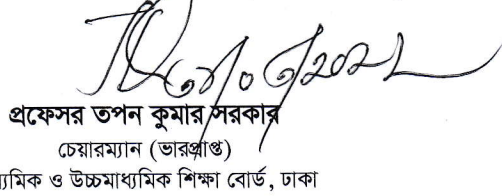 প্রফেসর তপন কুমার সরকার
চেয়ারম্যান (ভারপ্রাপ্ত)
ও উচ্চমাধ্যমিক শিক্ষা বোর্ড, ঢাকা